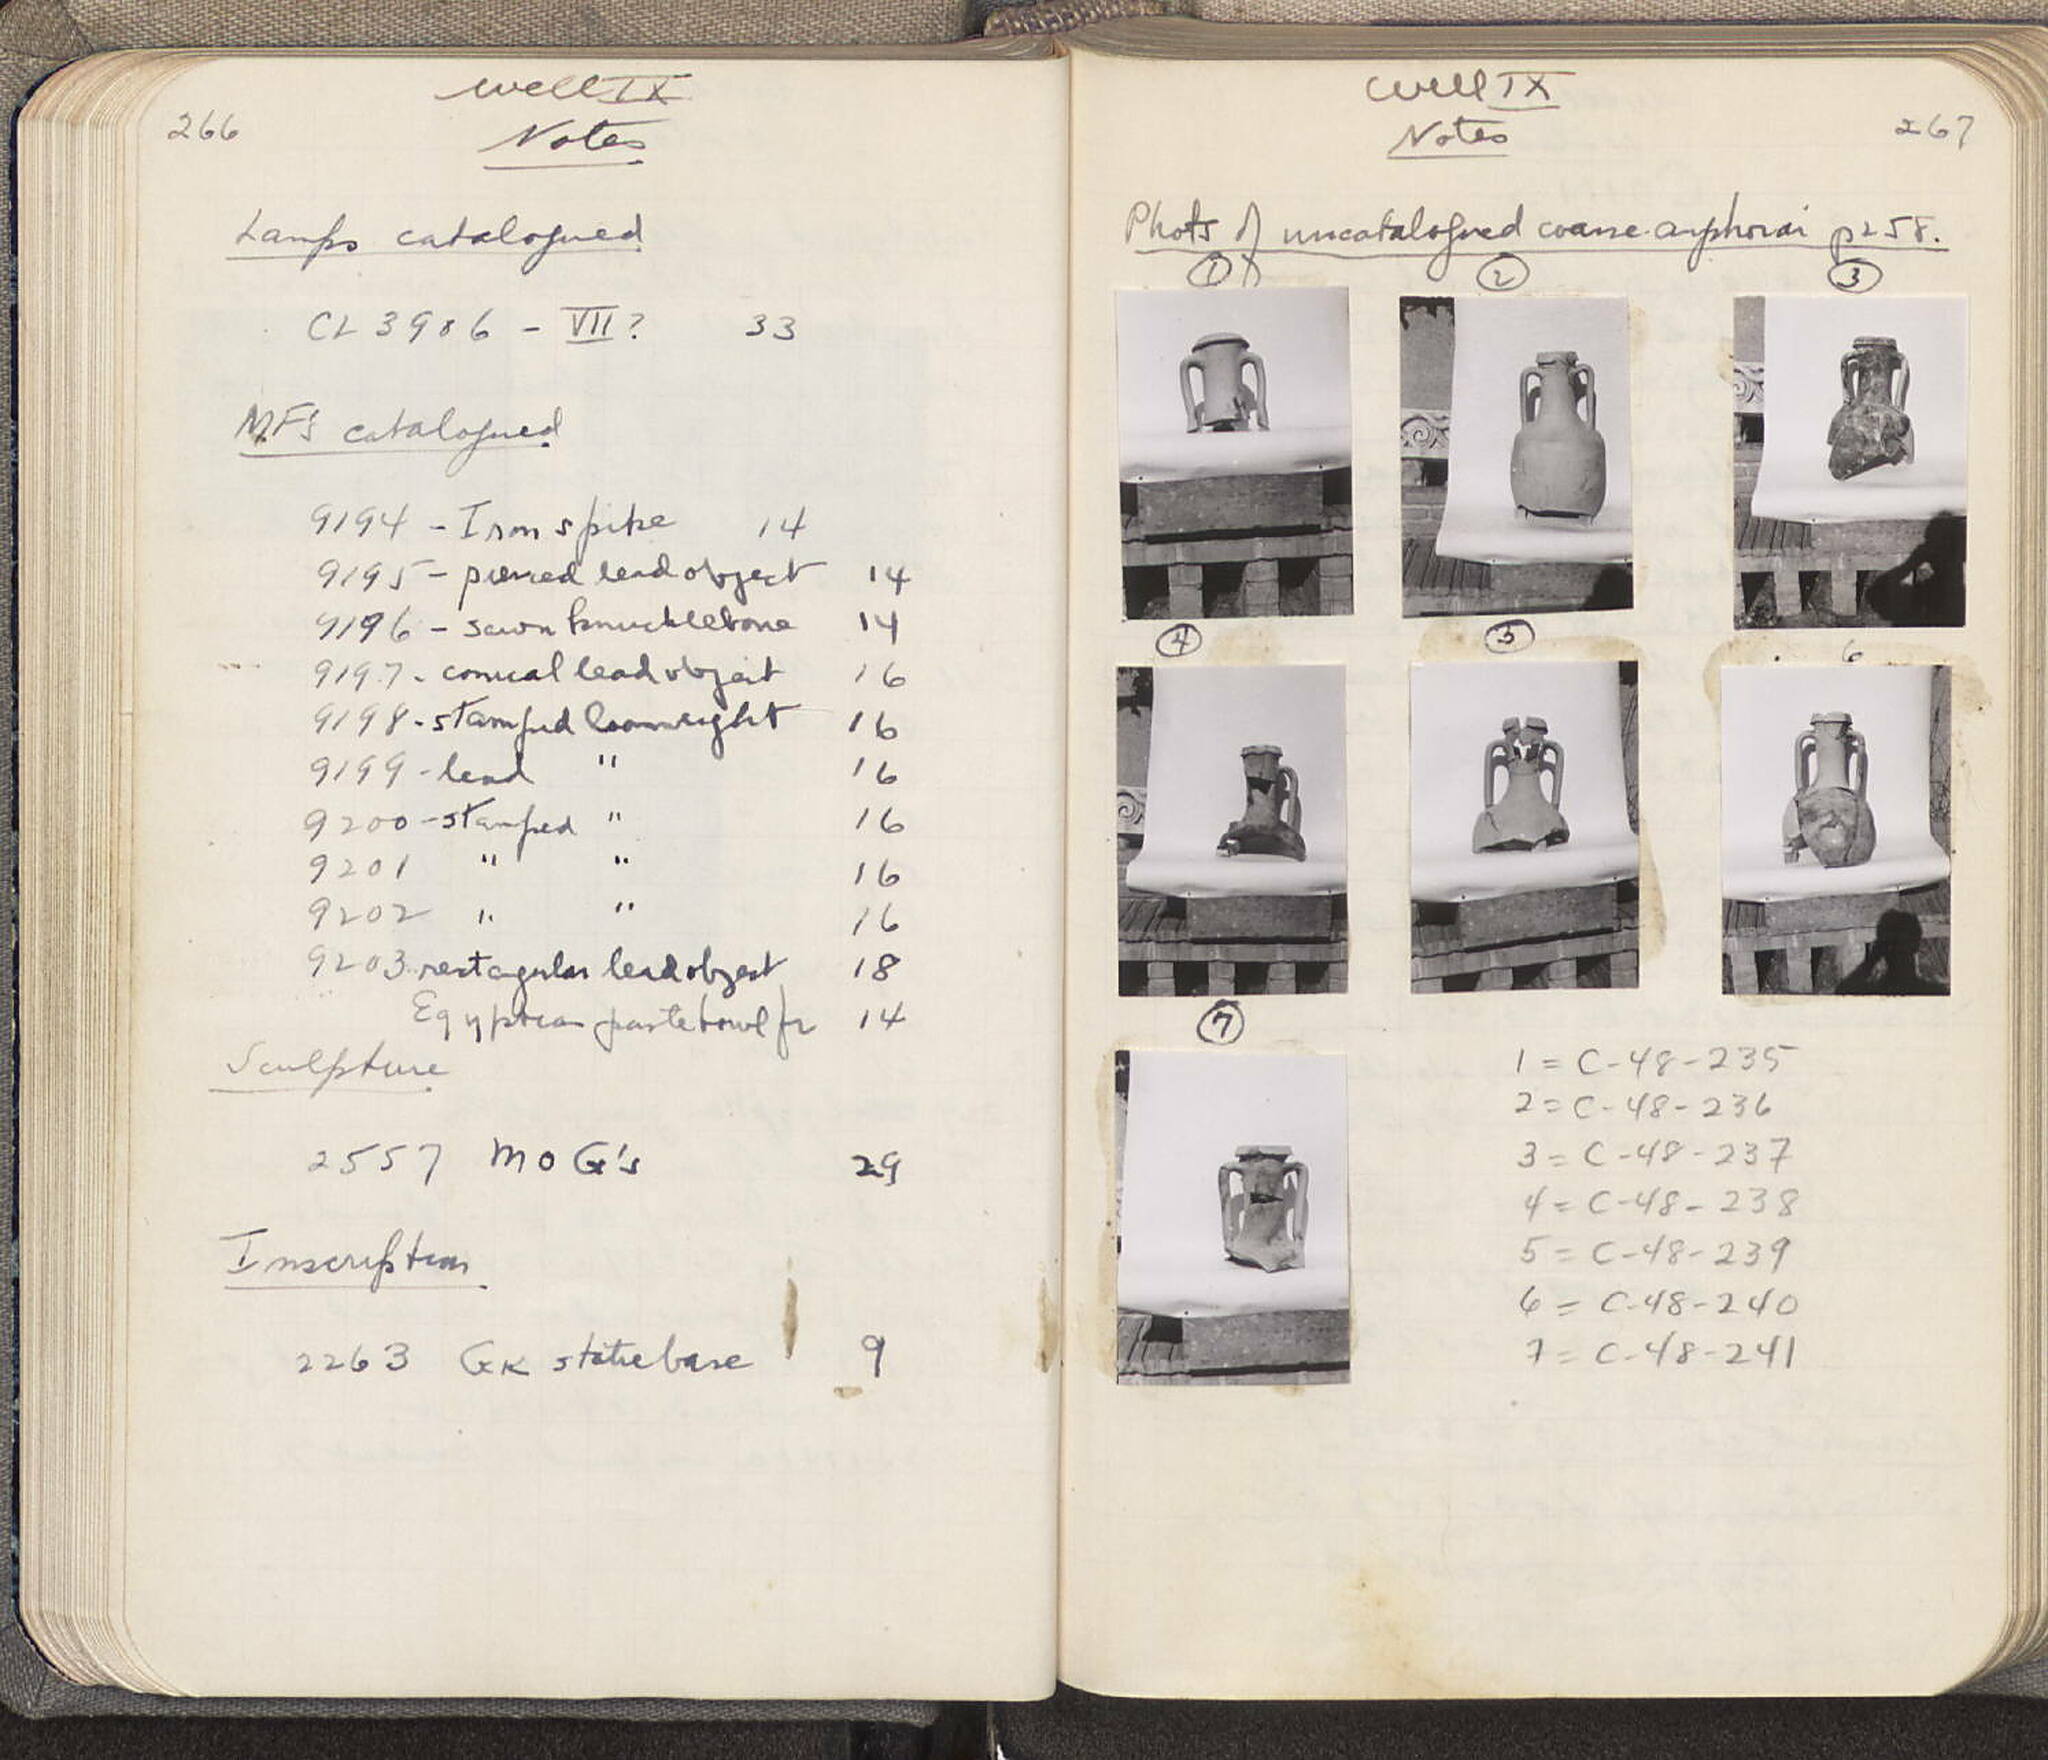 266
Well IX
Notes
Lamps catalogued
CL 3986 - VII? 33
MF's catalogued
9194 - Iron spike 14
9195 - pierced lead object 14
9196 - sawn knucklebone 14
9197 - conical lead object 16
9198 - stamped loomweight 16
9199 - lead " 16
9200 - stamped " 16
9201 " " 16
9202 " " 16
9203 rectagular lead object 18
Egyptian paste bowl fr 14
Sculpture
2557 MOG's 29
Inscription
2263 GK statue base 9
Well IX
Notes
267
Phots of uncatalogued coarse amphorai p 258.
1 2 3
4 5 6
7
1 = C-48-235
2 = C-48-236
3 = C-48-237
4 = C-48-238
5 = C-48-239
6 = C-48-240
7 = C-48-241